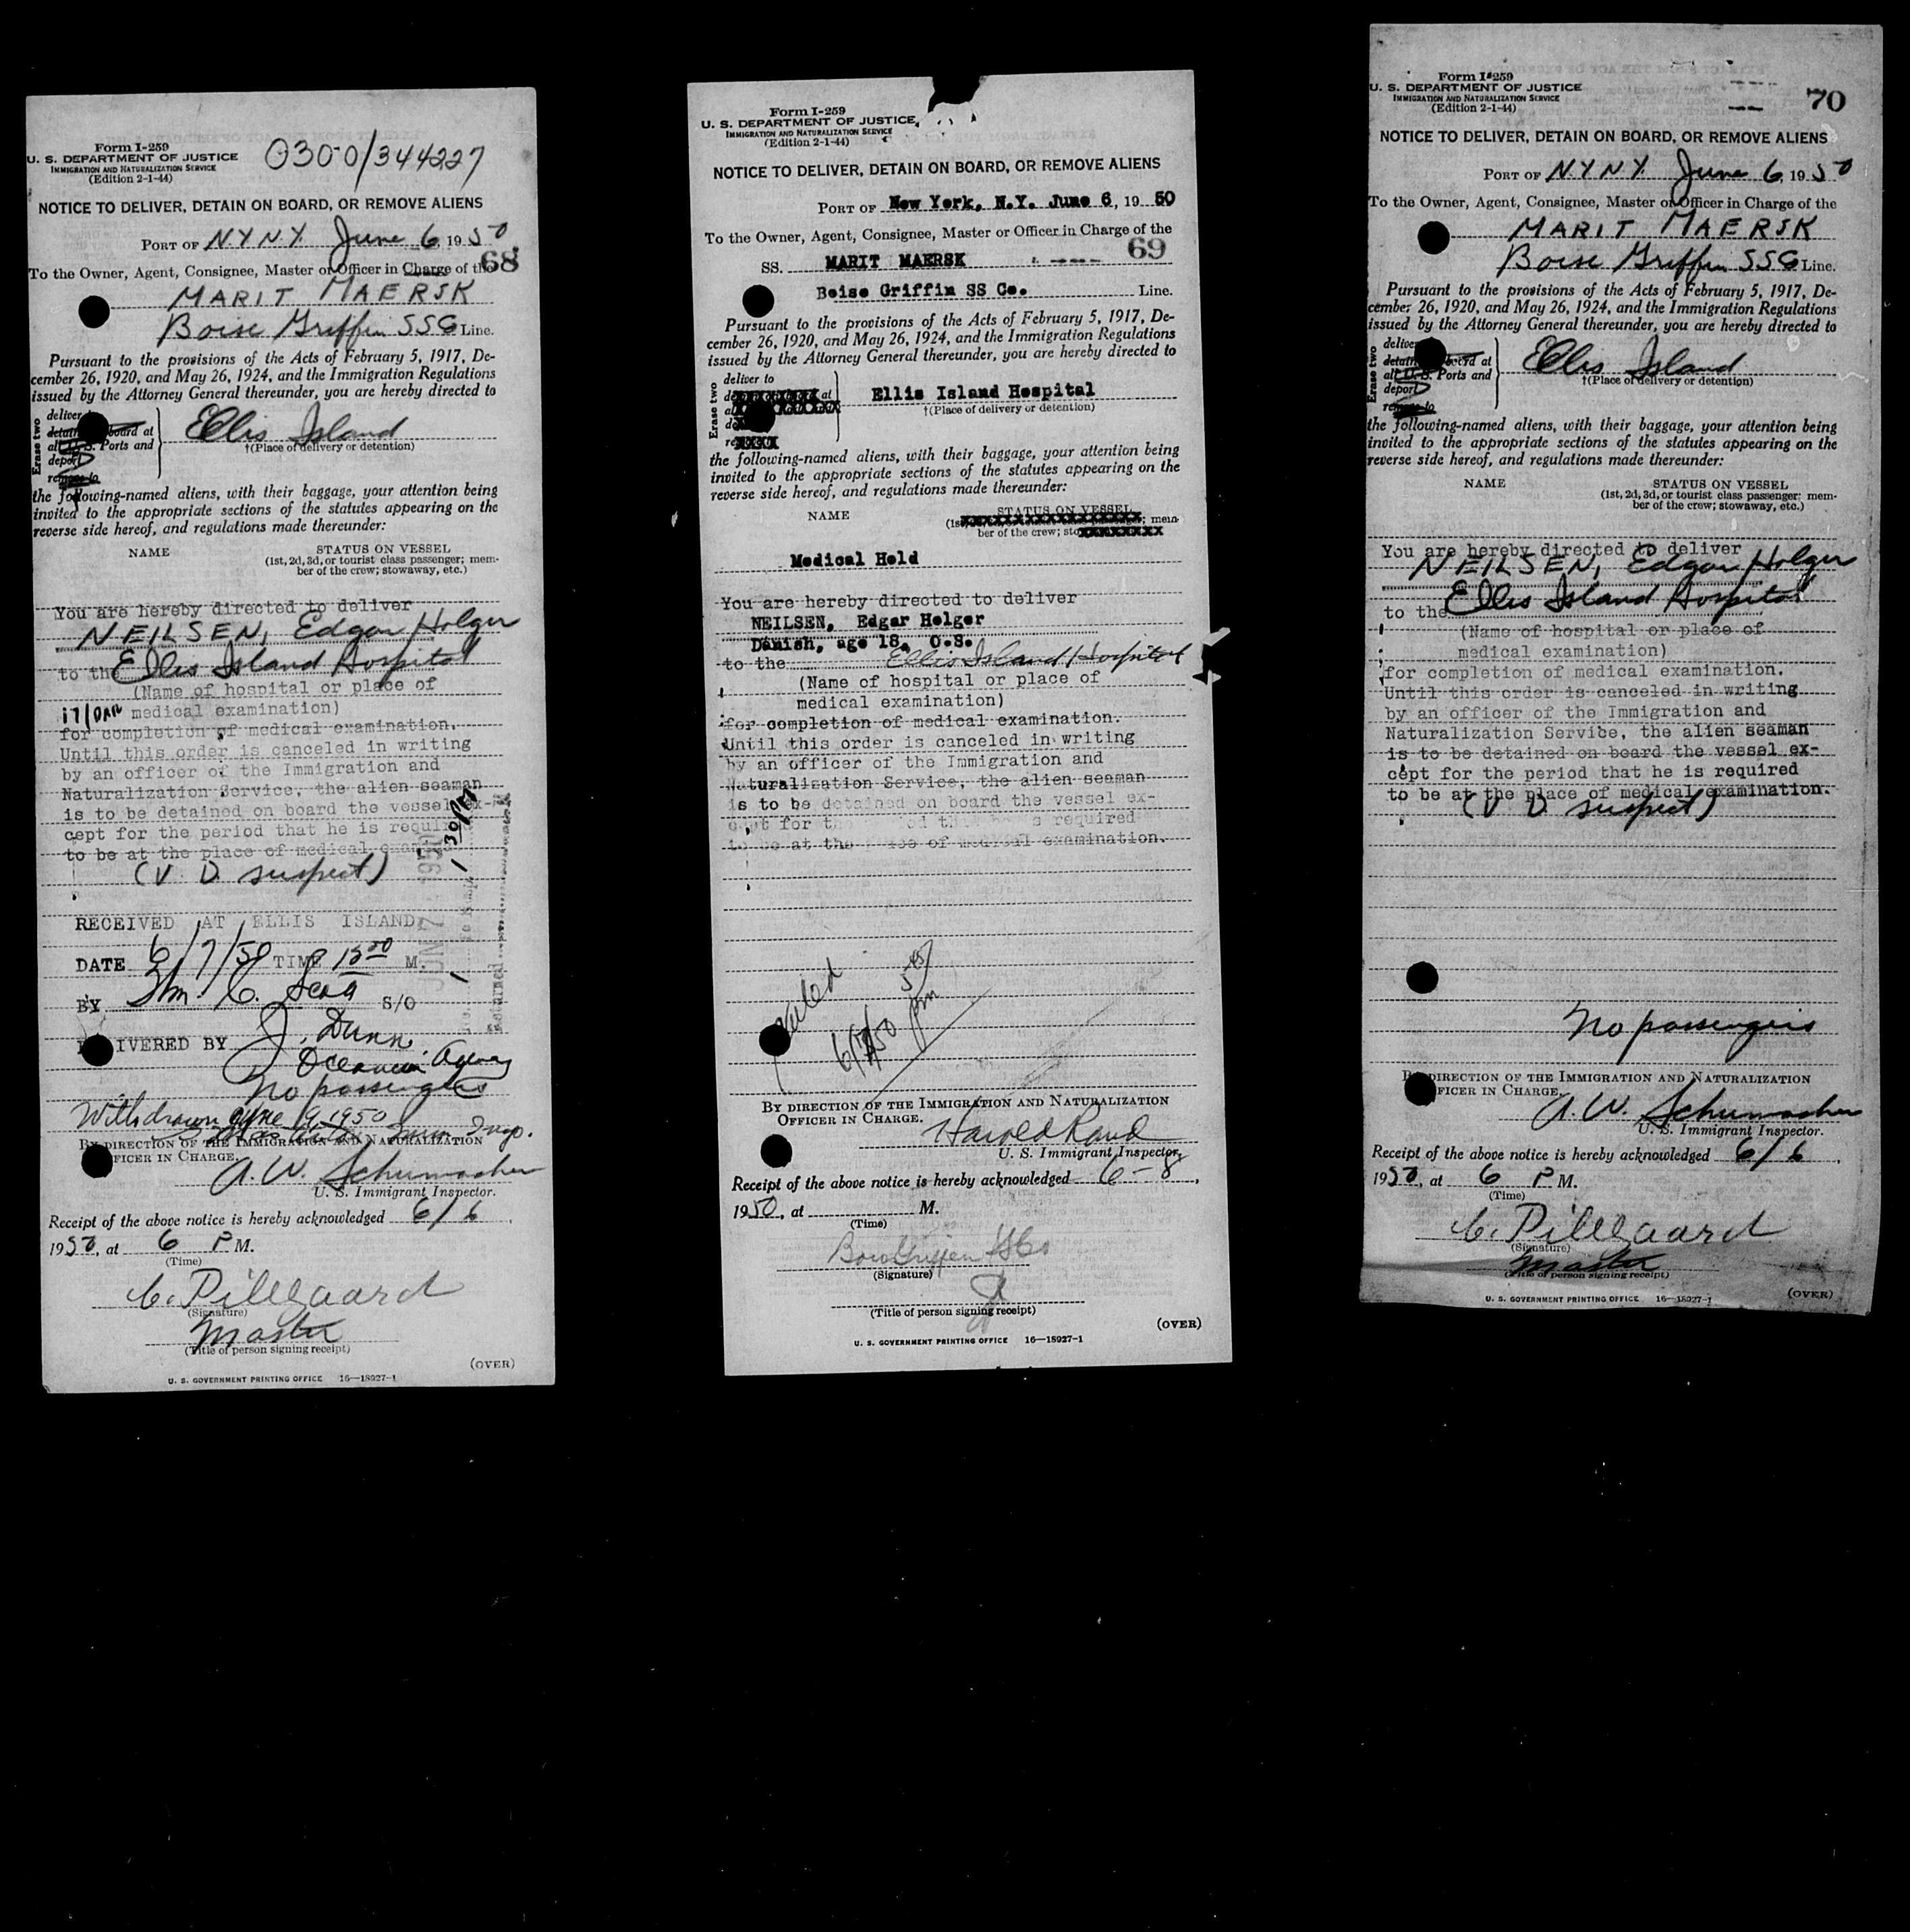 Form I-259
U. S. DEPARTMENT OF JUSTICE
IMMIGRATION AND NATURALIZATION SERVICE
(Edition 2-1-44)
0300/344227
NOTICE TO DELIVER, DETAIN ON BOARD, OR REMOVE ALIENS
PORT OF N.Y N.Y. June 6, 1950
To the Owner, Agent, Consignee, Master or Officer in Charge of the
68
MARIT MAERSK
Boise Griffin SSCo Line.
Pursuant to the provisions of the Acts of February 5, 1917, De-
cember 26, 1920, and May 26, 1924, and the Immigration Regulations
issued by the Attorney General thereunder, you are hereby directed to
Erase two
deliver
detain board at
all U.S. Ports and
deport
remove to
Ellis Island
†(Place of delivery or detention)
the following-named aliens, with their baggage, your attention being
invited to the appropriate sections of the statutes appearing on the
reverse side hereof, and regulations made thereunder:
NAME STATUS ON VESSEL
(1st, 2d, 3d, or tourist class passenger; mem-
ber of the crew; stowaway, etc.)
You are hereby directed to deliver
NEILSEN, Edgar Holger
to the Ellis Island Hospital
(Name of hospital or place of
17/DAN medical examination)
for completion of medical examination.
Until this order is canceled in writing
by an officer of the Immigration and
Naturalization Service, the alien seaman
is to be detained on board the vessel ex-
cept for the period that he is requir
to be at the place of medical exam
(V. D. suspect)
RECEIVED AT ELLIS ISLAND
DATE 6/7/50 TIME 1500 M.
BY S/O
IVERED BY J. Dunn
Agency
No passengers
Withdrawn June 9, 1950
BY DIRECTION OF THE IMMIGRATION AND NATURALIZATION
FICER IN CHARGE.
A.W. Schumacher
U. S. Immigrant Inspector.
Receipt of the above notice is hereby acknowledged 6/6,
1950, at 6 P M.
(Time)
C. Pillgaard
(Signature)
Master
(Title of person signing receipt)
(OVER)
U. S. GOVERNMENT PRINTING OFFICE 16—18927-1
Form I-259
U. S. DEPARTMENT OF JUSTICE
IMMIGRATION AND NATURALIZATION SERVICE
(Edition 2-1-44)
NOTICE TO DELIVER, DETAIN ON BOARD, OR REMOVE ALIENS
PORT OF New York, N.Y. June 6, 1950
To the Owner, Agent, Consignee, Master or Officer in Charge of the
69
SS. MARIT MAERSK
Boise Griffin SS Co. Line.
Pursuant to the provisions of the Acts of February 5, 1917, De-
cember 26, 1920, and May 26, 1924, and the Immigration Regulations
issued by the Attorney General thereunder, you are hereby directed to
Erase two
deliver to
Ellis Island Hospital
†(Place of delivery or detention)
the following-named aliens, with their baggage, your attention being
invited to the appropriate sections of the statutes appearing on the
reverse side hereof, and regulations made thereunder:
NAME STATUS ON VESSEL
mem-
ber of the crew;
Medical Hold
You are hereby directed to deliver
NEILSEN, Edgar Holger
Danish, age 18, O.S.
to the Ellis Island Hospital
(Name of hospital or place of
medical examination)
for completion of medical examination.
Until this order is canceled in writing
by an officer of the Immigration and
Naturalization Service, the alien seaman
is to be detained on board the vessel ex-
cept for required
to be at the of medical examination.
BY DIRECTION OF THE IMMIGRATION AND NATURALIZATION
OFFICER IN CHARGE.
Harold Rand
U. S. Immigrant Inspector.
Receipt of the above notice is hereby acknowledged 6-8,
1950, at M.
(Time)
(Signature)
(Title of person signing receipt)
(OVER)
U. S. GOVERNMENT PRINTING OFFICE 16—18927-1
Form I-259
U. S. DEPARTMENT OF JUSTICE
IMMIGRATION AND NATURALIZATION SERVICE
(Edition 2-1-44)
70
NOTICE TO DELIVER, DETAIN ON BOARD, OR REMOVE ALIENS
PORT OF N.Y N.Y. June 6, 1950
To the Owner, Agent, Consignee, Master or Officer in Charge of the
MARIT MAERSK
Boise Griffin SSCo Line.
Pursuant to the provisions of the Acts of February 5, 1917, De-
cember 26, 1920, and May 26, 1924, and the Immigration Regulations
issued by the Attorney General thereunder, you are hereby directed to
Erase two
deliver
detain board at
all U.S. Ports and
deport
remove to
Ellis Island
†(Place of delivery or detention)
the following-named aliens, with their baggage, your attention being
invited to the appropriate sections of the statutes appearing on the
reverse side hereof, and regulations made thereunder:
NAME STATUS ON VESSEL
(1st, 2d, 3d, or tourist class passenger; mem-
ber of the crew; stowaway, etc.)
You are hereby directed to deliver
NEILSEN, Edgar Holger
to the Ellis Island Hospital
(Name of hospital or place of
medical examination)
for completion of medical examination.
Until this order is canceled in writing
by an officer of the Immigration and
Naturalization Service, the alien seaman
is to be detained on board the vessel ex-
cept for the period that he is required
to be at the place of medical examination.
(V D suspect)
No passengers
BY DIRECTION OF THE IMMIGRATION AND NATURALIZATION
FICER IN CHARGE.
A.W. Schumacher
U. S. Immigrant Inspector.
Receipt of the above notice is hereby acknowledged 6/6,
1950, at 6 P M.
(Time)
C. Pillgaard
(Signature)
Master
(Title of person signing receipt)
(OVER)
U. S. GOVERNMENT PRINTING OFFICE 16—18927-1